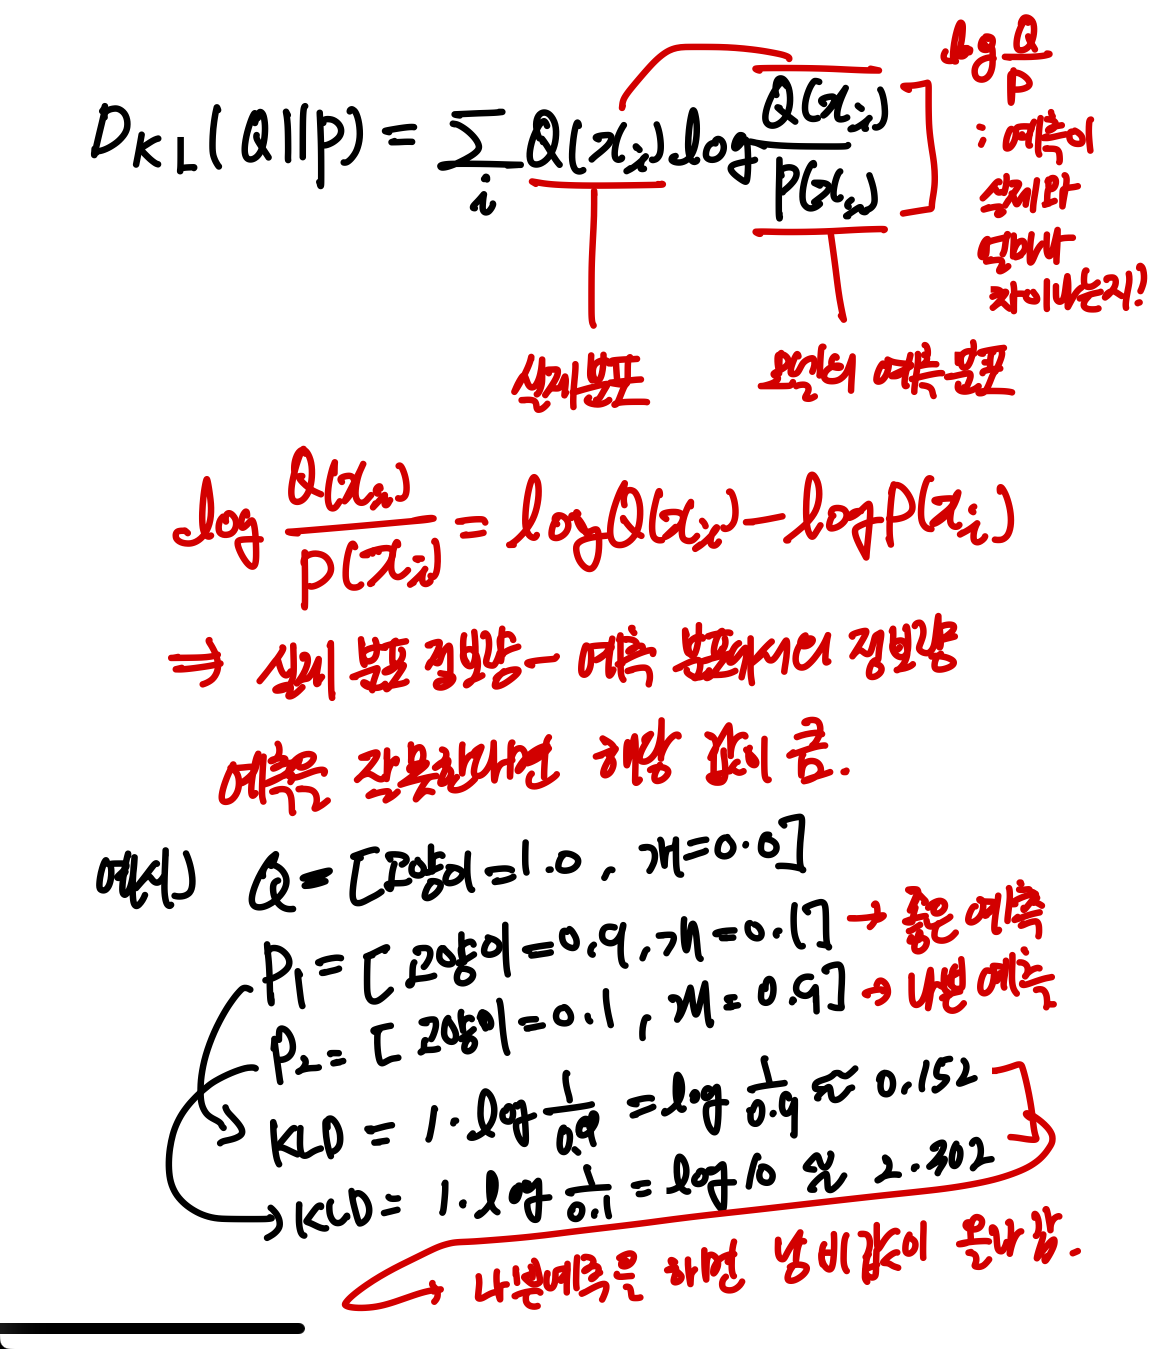 D_KL(Q||P) = Σ_i Q(x_i) log Q(x_i)/P(x_i)
log Q/P
: 예측이
실제와
얼마나
차이나는지?
실제분포 모델의 예측 분포
log Q(x_i)/P(x_i) = log Q(x_i) - log P(x_i)
⇒ 실제 분포 정보량 - 예측 분포에서의 정보량
예측을 잘못한다면 해당 값이 큼.
예시) Q = [고양이=1.0, 개=0.0]
P₁ = [고양이=0.9, 개=0.1] → 좋은 예측
P₂ = [고양이=0.1, 개=0.9] → 나쁜 예측
KLD = 1·log 1/0.9 = log 1/0.9 ≈ 0.152
KLD = 1·log 1/0.1 = log 10 ≈ 2.302
→ 나쁜예측을 하면 낭비값이 올라감.